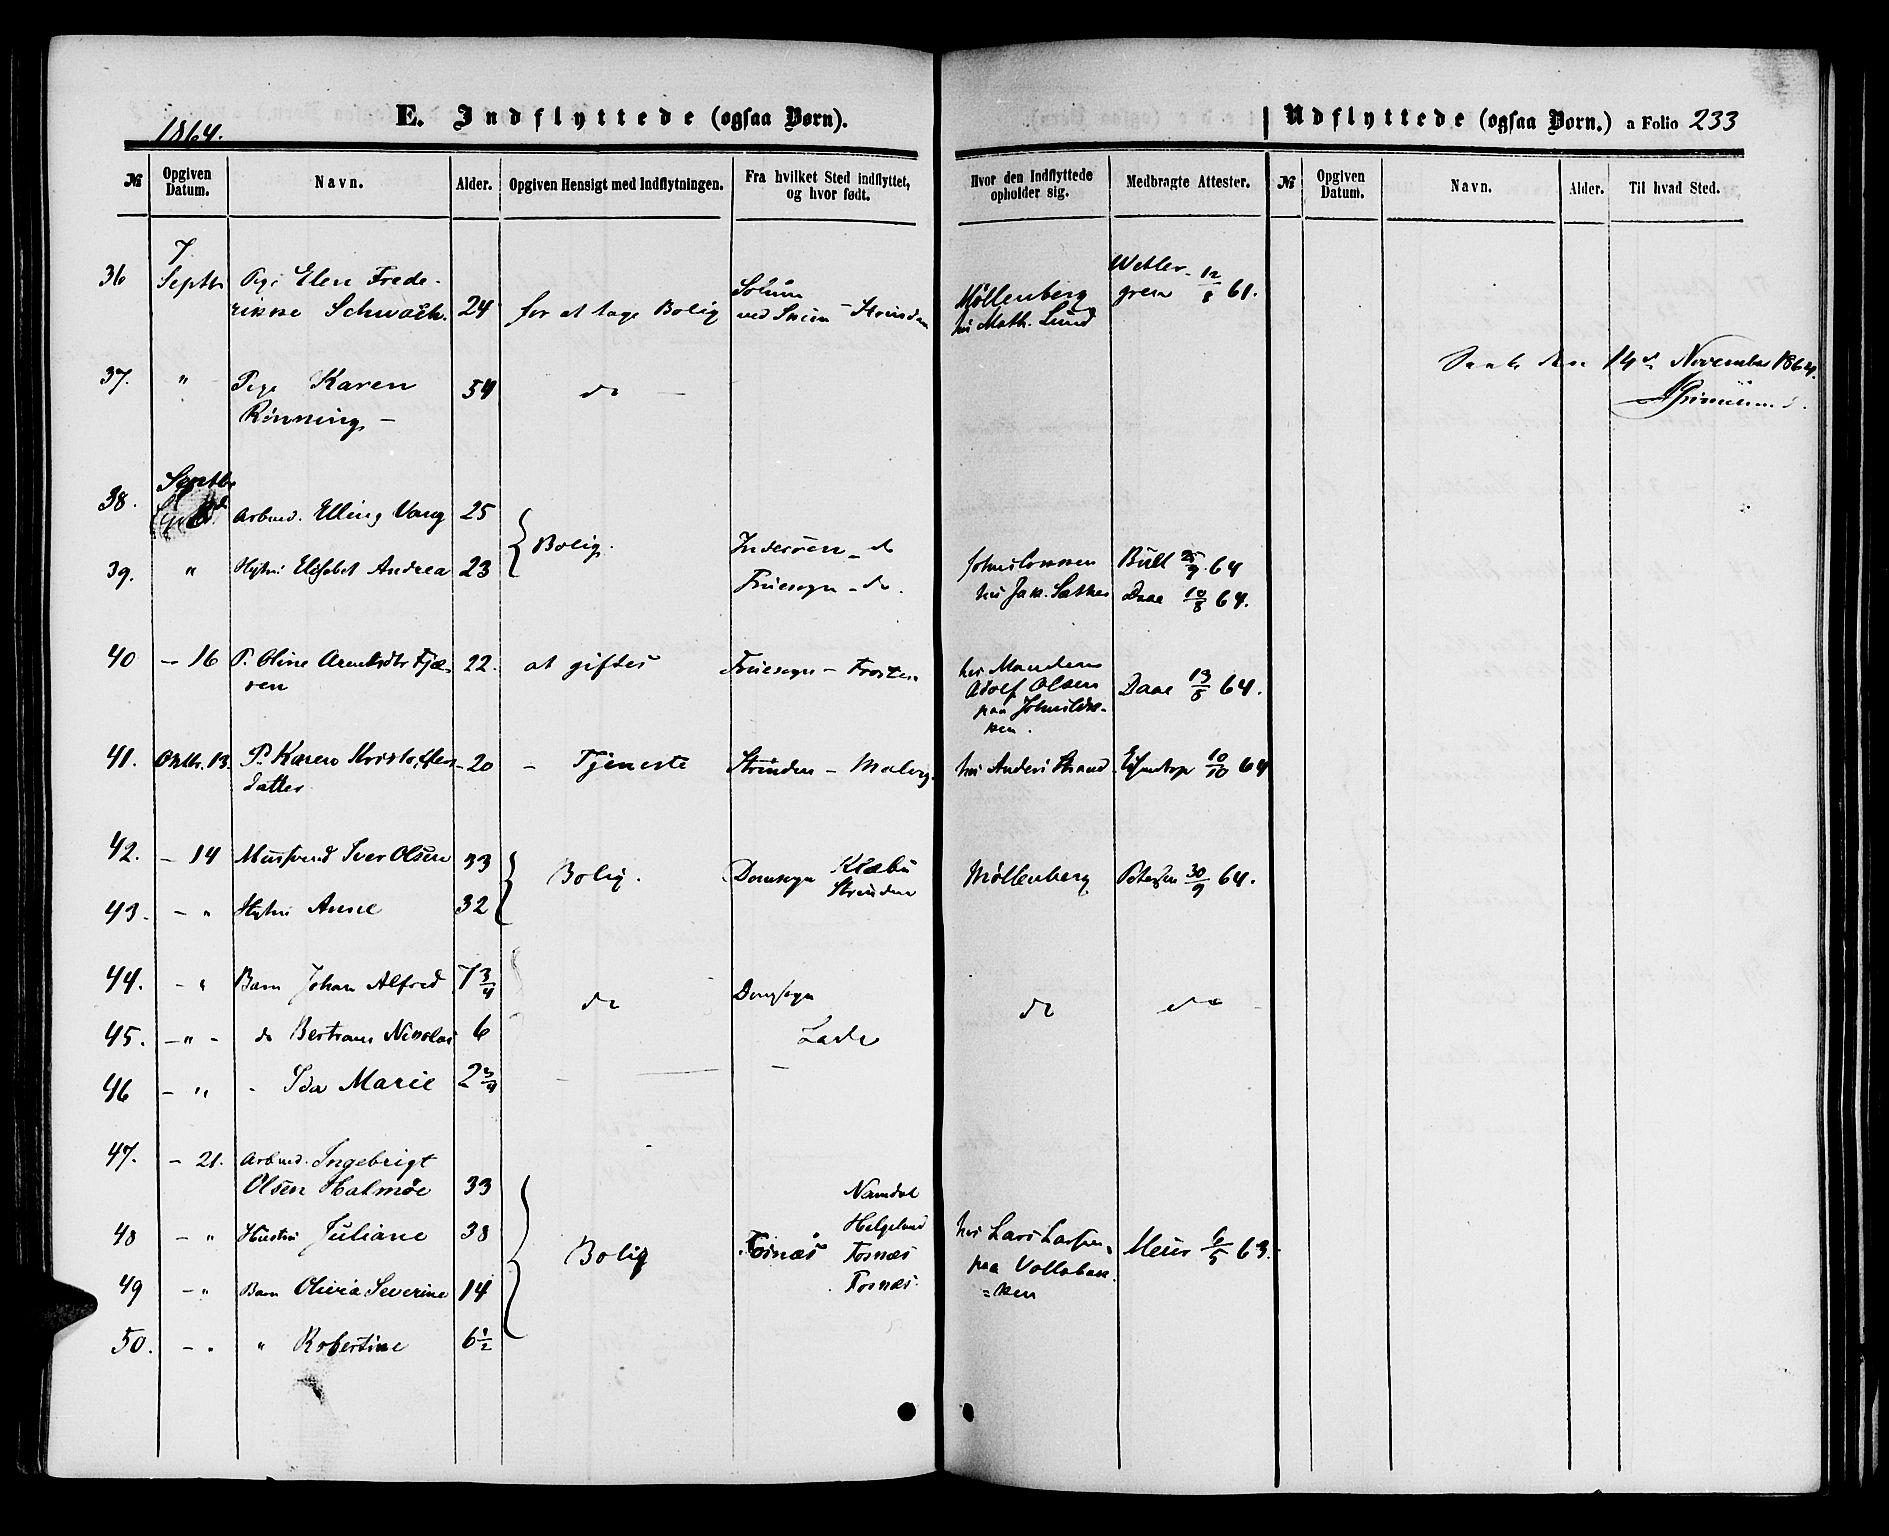 1864.
E. Indflyttede (ogsaa Børn).
Udflyttede (ogsaa Børn.) a Folio 233
№ Opgiven Datum. Navn. Alder. Opgiven Hensigt med Indflytningen. Fra hvilket Sted indflyttet, og hvor født. Hvor den Indflyttede opholder sig. Medbragte Attester. № Opgiven Datum. Navn. Alder. Til hvad Sted.
7
36 Septbr Pige Elen Frede-
rikke Schwach. 24 for at tage Bolig Solum
ved Skien Møllenberg
hos Math. Lund Wetler-
gren 12/8 61.
14de November 1864.
37. " Pige Karen 54 do -
Rønning -
Septbr
38. Arbmd. Elling Vang 25 Bolig. Inderøen - do Bull 25/9 64
39. " Hustru Elisabet Andrea 23 Fruesogn - do. hos Jak. Sæther Daae 10/8 64.
40 - 16 P. Oline Arentsdtr Fjæ-
ren 22. at giftes Fruesogn - Frosten hos Manden
Adolf Olsen
paa Daae 13/8 64.
41. Oktbr. 13. P. Karen Kristoffers-
datter 20 - Tjeneste Strinden - Malvig hos Anders Strand 10/10 64
42. - 14 Iver Olsen 33 Bolig. Domsogn Klæbu
Strinden Møllenberg Petersen 30/9 64.
43. - " Hustru Anne 32
44. - " Barn Johan Alfred 7 3/4 do Domsogn do do
45. - " - do Bertram Nikolai 6 Lade
46 - " - Ida Marie 2 3/4 - -
47. - 21. Arbmd. Ingebrigt
Olsen Halmøe 33 Namdal
48 - " Hustru Juliane 38 Bolig Fosnæs Helgeland
Fosnæs hos Lars Larsen
paa Vollabak-
=ken Meier 6/5 63.
49 - " Barn Olivia Severine 14 Fosnæs
50. - " " Robertine 6 1/2